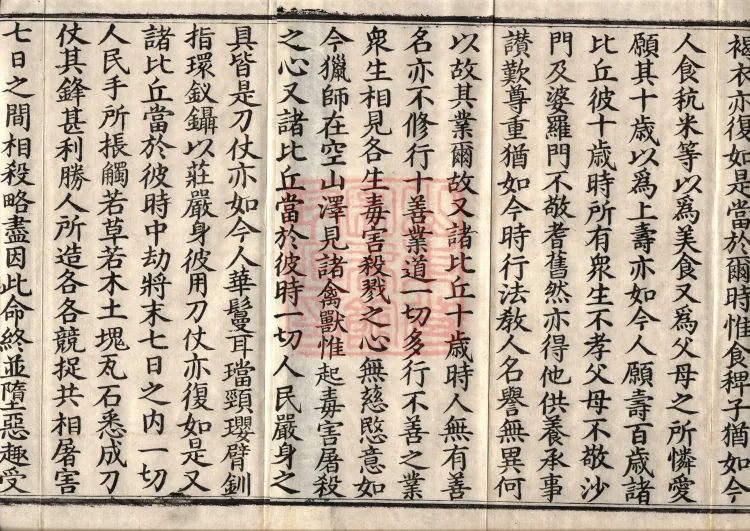 褐衣亦復如是當於爾時惟食稗子猶如今
人食秔米等以爲美食又爲父母之所憐愛
願其十歲以爲上壽亦如今人願壽百歲諸
比丘彼十歲時所有衆生不孝父母不敬沙
門及婆羅門不敬耆舊然亦得他供養承事
讃歎尊重猶如今時行法敎人名譽無異何
以故其業爾故又諸比丘十歲時人無有善
名亦不修行十善業道一切多行不善之業
衆生相見各生毒害殺戮之心無慈愍意如
今獵師在空山澤見諸禽獸惟起毒害屠殺
之心又諸比丘當於彼時一切人民嚴身之
具皆是刀仗亦如今人華鬘耳璫頸瓔臂釧
指環釵鑷以莊嚴身彼用刀仗亦復如是又
諸比丘當於彼時中劫將末七日之內一切
人民手所振觸若草若木土塊瓦石悉成刀
仗其鋒甚利勝人所造各各競捉共相屠害
七日之間相殺略盡因此命終並墮惡趣受